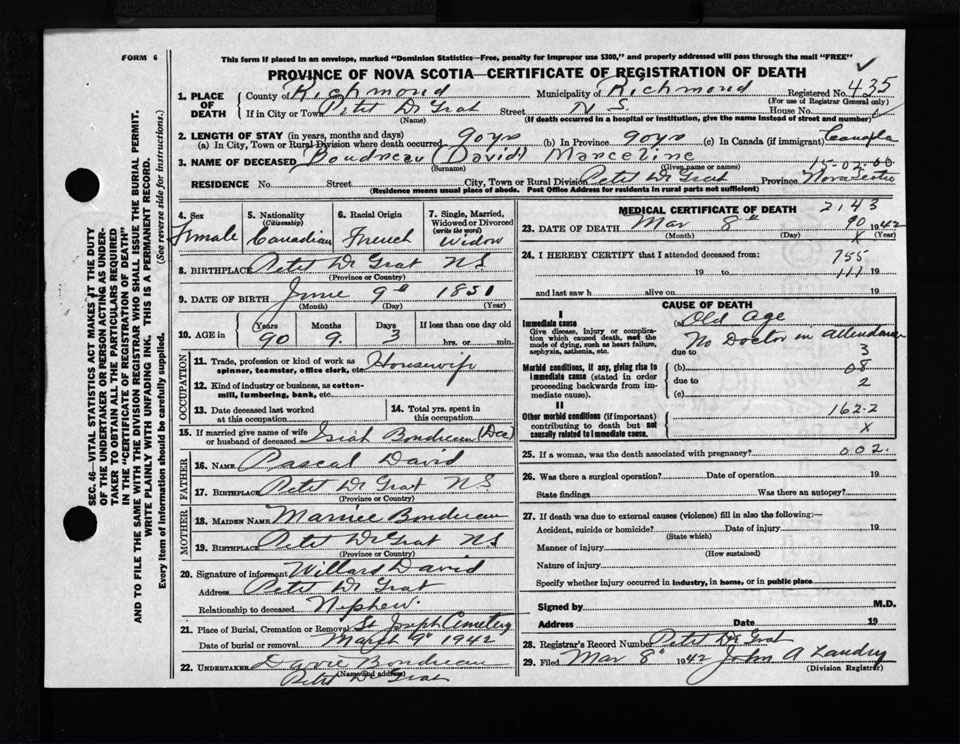 FORM 6
This form if placed in an envelope, marked "Dominion Statistics—Free, penalty for improper use $300," and properly addressed will pass through the mail "FREE"
PROVINCE OF NOVA SCOTIA—CERTIFICATE OF REGISTRATION OF DEATH
1. PLACE OF DEATH County of Richmond Municipality of Richmond Registered No. 435
(For use of Registrar General only)
If in City or Town Petit De Grat Street N S. House No.
(Name) (If death occurred in a hospital or institution, give the name instead of street and number)
2. LENGTH OF STAY (in years, months and days)
(a) In City, Town or Rural Division where death occurred 90 yrs (b) In Province 90 yrs (c) In Canada (if immigrant) Canada
3. NAME OF DECEASED Boudreau (David) Marceline
(Surname) (Given name or names) 15-02-00
RESIDENCE No. Street City, Town or Rural Division Petit De Grat Province Nova Scotia
(Residence means usual place of abode. Post Office Address for residents in rural parts not sufficient)
4. Sex Female
5. Nationality (Citizenship) Canadian
6. Racial Origin French
7. Single, Married, Widowed or Divorced (write the word) Widow
8. BIRTHPLACE Petit De Grat NS
(Province or Country)
9. DATE OF BIRTH June 9th 1851
(Month) (Day) (Year)
10. AGE in Years 90 Months 9. Days 3 If less than one day old hrs. or min.
OCCUPATION
11. Trade, profession or kind of work as spinner, teamster, office clerk, etc. Housewife
12. Kind of industry or business, as cotton-mill, lumbering, bank, etc.
13. Date deceased last worked at this occupation
14. Total yrs. spent in this occupation
15. If married give name of wife or husband of deceased Isiah Boudreau (Dec)
FATHER
16. NAME Pascal David
17. BIRTHPLACE Petit De Grat NS
(Province or Country)
MOTHER
18. MAIDEN NAME Boudreau
19. BIRTHPLACE Petit De Grat NS
(Province or Country)
20. Signature of informant Willard David
Address Petit De Grat
Relationship to deceased Nephew.
21. Place of Burial, Cremation or Removal St Joseph Cemetery
Date of burial or removal March 9th 1942
22. UNDERTAKER Boudreau
(Name and Address)
Petit De Grat
MEDICAL CERTIFICATE OF DEATH 2143
23. DATE OF DEATH Mar 8th 90 1942
(Month) (Day) X (Year)
24. I HEREBY CERTIFY that I attended deceased from: 755
19 to 111 19
and last saw h alive on 19
CAUSE OF DEATH
I
Immediate cause
Give disease, injury or complication which caused death, not the mode of dying, such as heart failure, asphyxia, asthenia, etc.
(a) Old Age
due to No Doctor in attendance
3
Morbid conditions, if any, giving rise to immediate cause (stated in order proceeding backwards from immediate cause).
(b) 08
due to 2
(c)
II
Other morbid conditions (if important) contributing to death but not causally related to immediate cause.
162-2
X
25. If a woman, was the death associated with pregnancy? 002.
26. Was there a surgical operation? Date of operation 19
State findings Was there an autopsy?
27. If death was due to external causes (violence) fill in also the following:—
Accident, suicide or homicide? Date of injury 19
(State which)
Manner of injury
(How sustained)
Nature of injury
Specify whether injury occurred in industry, in home, or in public place
Signed by M.D.
Address Date 19
28. Registrar's Record Number Petit De Grat
29. Filed Mar 8th 1942 John A Landry
(Division Registrar)
SEC. 46—VITAL STATISTICS ACT MAKES IT THE DUTY
OF THE UNDERTAKER OR PERSON ACTING AS UNDER-
TAKER TO OBTAIN ALL THE PARTICULARS REQUIRED
IN THE "CERTIFICATE OF REGISTRATION OF DEATH"
AND TO FILE THE SAME WITH THE DIVISION REGISTRAR WHO SHALL ISSUE THE BURIAL PERMIT.
WRITE PLAINLY WITH UNFADING INK. THIS IS A PERMANENT RECORD.
Every item of information should be carefully supplied. (See reverse side for instructions.)